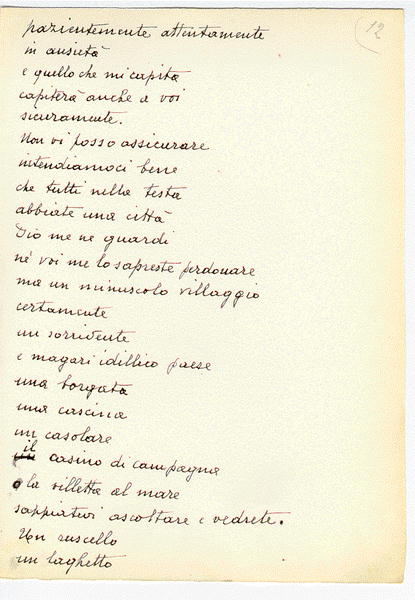 12
pazientemente attentamente
in ansietà
e quello che mi capita
capiterà anche a voi
sicuramente.
Non vi posso assicurare
intendiamoci bene
che tutti nella testa
abbiate una città
Dio me ne guardi
né voi me lo sapreste perdonare
ma un minuscolo villaggio
certamente
un sorridente
e magari idillico paese
una borgata
una cascina
un casolare
il casino di campagna
o la villetta al mare
sappiatevi ascoltare e vedrete.
Un ruscello
un laghetto